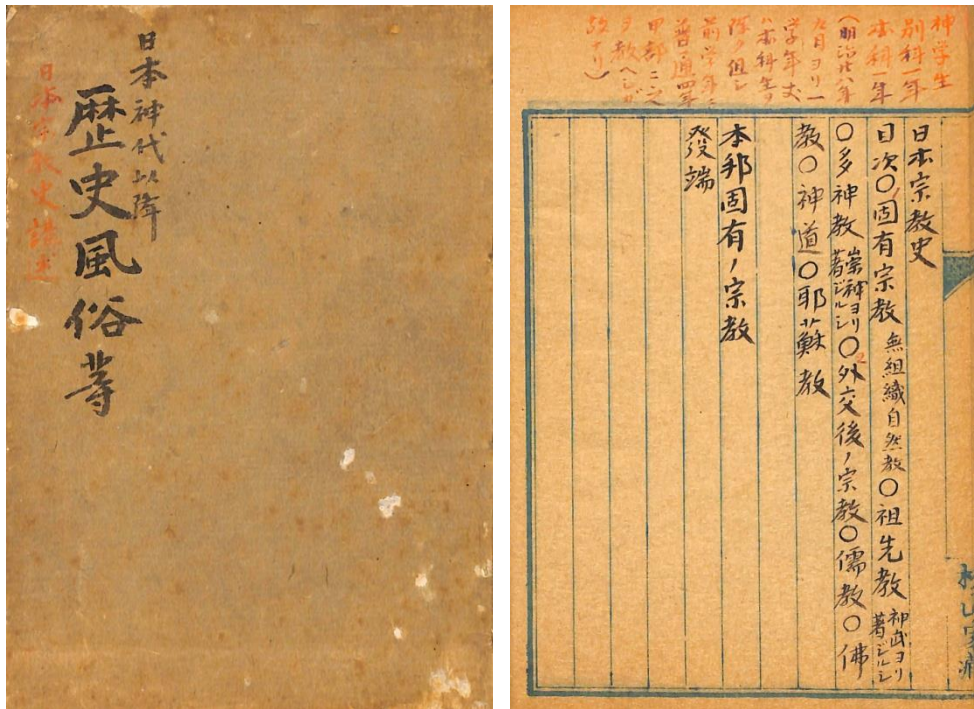 日本神代以降
歴史風俗等
日本宗教史講述
神学生
別科一年
本科一年
(明治廿八年
九月ヨリ一
学年丈
ハ本科生ヲ
除ク但シ
前学年ニ
普通四年
甲部ニ之
ヲ教ヘシガ
故ナリ)
日本宗教史
目次〇固有宗教 無組織自然教〇祖先教 神武ヨリ著ジルシ
〇多神教 崇神ヨリ著ジルシ〇外交後ノ宗教〇儒教〇佛
教〇神道〇耶蘇教
本邦固有ノ宗教
発端